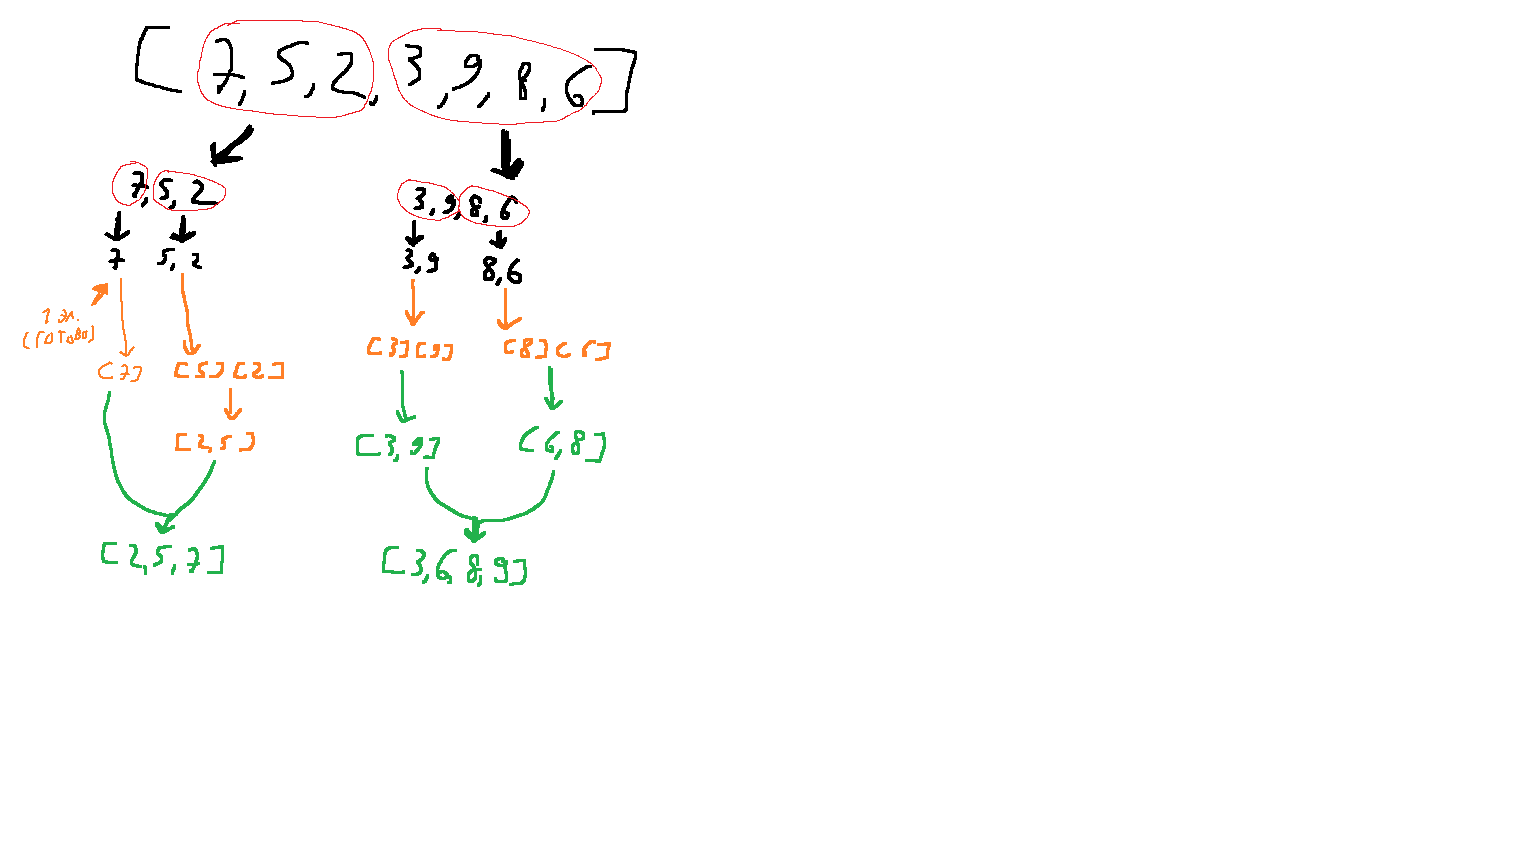 [7, 5, 2, 3, 9, 8, 6]
7, 5, 2
3, 9, 8, 6
7
5, 2
3, 9
8, 6
1 эл.
(готово)
[7]
[5] [2]
[3] [9]
[8] [6]
[2, 5]
[3, 9]
[6, 8]
[2, 5, 7]
[3, 6, 8, 9]